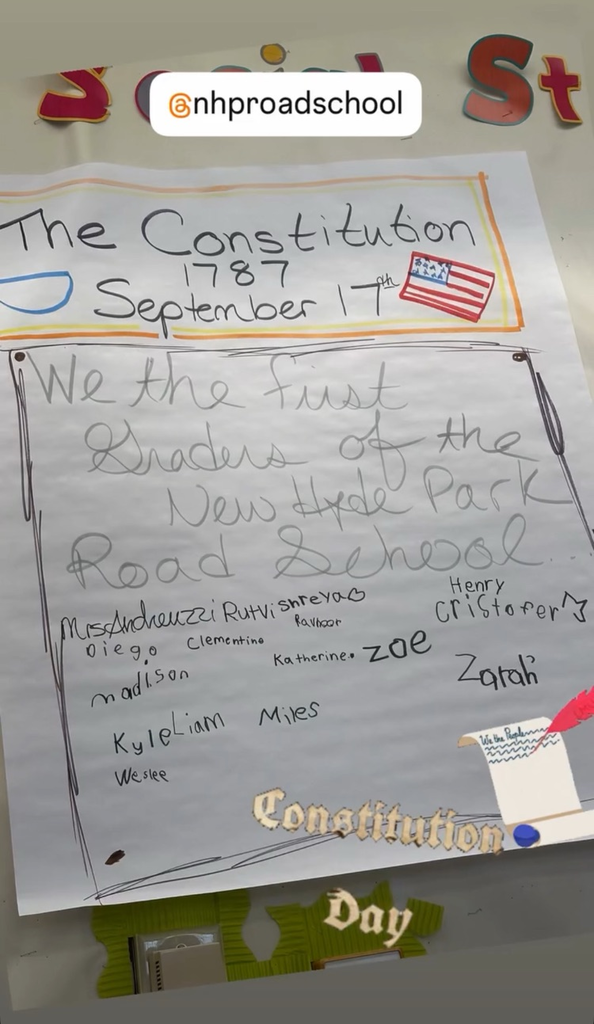 Social St
@nhproadschool
The Constitution
1787
September 17th
We the first
Graders of the
New Hyde Park
Road School...
Mrs Andreuzzi Rutvi Shreya Henry
Diego Clementine Cristofer
madison Katherine. Zoe Zarah
Kyle Liam Miles
Weslee
We the People
Constitution
Day